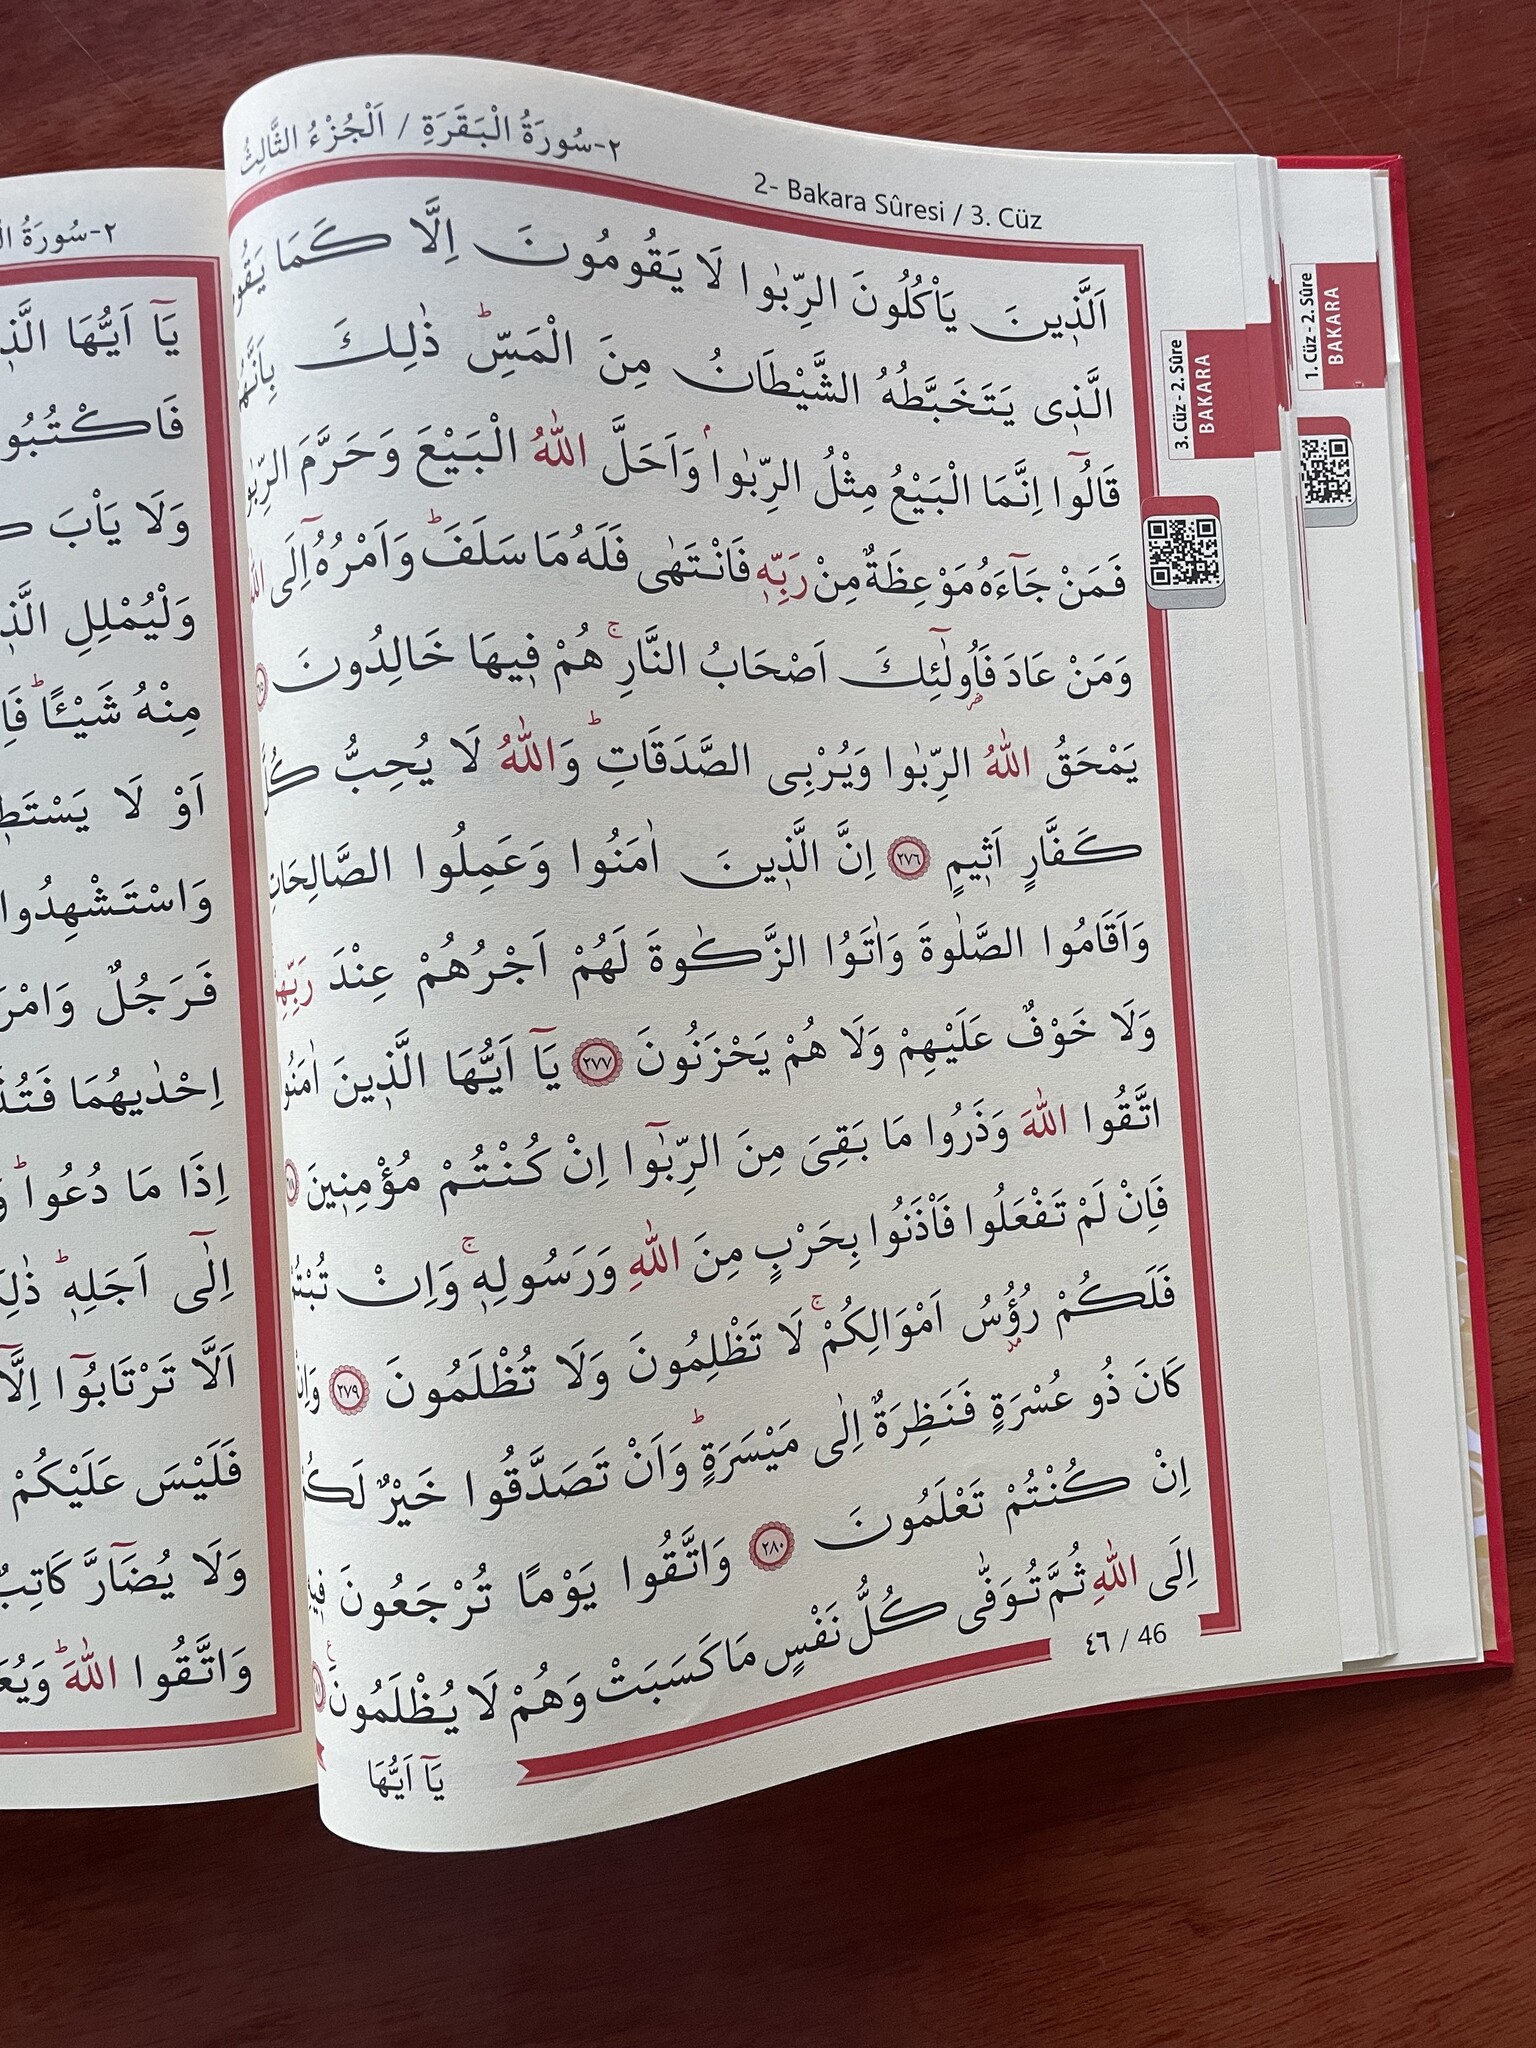 ٢-سُورَةُ الْبَقَرَةِ / اَلْجُزْءُ الثَّالِثُ
2- Bakara Sûresi / 3. Cüz
اَلَّذ۪ينَ يَأْكُلُونَ الرِّبٰوا لَا يَقُومُونَ اِلَّا كَمَا
الَّذ۪ى يَتَخَبَّطُهُ الشَّيْطَانُ مِنَ الْمَسِّۜ ذٰلِكَ بِاَنَّهُمْ
قَالُٓوا اِنَّمَا الْبَيْعُ مِثْلُ الرِّبٰواۢ وَاَحَلَّ اللّٰهُ الْبَيْعَ وَحَرَّمَ الرِّبٰوا
فَمَنْ جَٓاءَهُ مَوْعِظَةٌ مِنْ رَبِّه۪ فَانْتَهٰى فَلَهُ مَا سَلَفَۜ وَاَمْرُهُٓ اِلَى
وَمَنْ عَادَ فَاُو۬لٰٓئِكَ اَصْحَابُ النَّارِۚ هُمْ ف۪يهَا خَالِدُونَ
يَمْحَقُ اللّٰهُ الرِّبٰوا وَيُرْبِى الصَّدَقَاتِۜ وَاللّٰهُ لَا يُحِبُّ كُلَّ
كَفَّارٍ اَث۪يمٍ ٢٧٦ اِنَّ الَّذ۪ينَ اٰمَنُوا وَعَمِلُوا الصَّالِحَاتِ
وَاَقَامُوا الصَّلٰوةَ وَاٰتَوُا الزَّكٰوةَ لَهُمْ اَجْرُهُمْ عِنْدَ رَبِّهِمْ
وَلَا خَوْفٌ عَلَيْهِمْ وَلَا هُمْ يَحْزَنُونَ ٢٧٧ يَٓا اَيُّهَا الَّذ۪ينَ اٰمَنُوا
اتَّقُوا اللّٰهَ وَذَرُوا مَا بَقِىَ مِنَ الرِّبٰٓوا اِنْ كُنْتُمْ مُؤْمِن۪ينَ
فَاِنْ لَمْ تَفْعَلُوا فَأْذَنُوا بِحَرْبٍ مِنَ اللّٰهِ وَرَسُولِه۪ۚ وَاِنْ
فَلَكُمْ رُؤُ۫سُ اَمْوَالِكُمْۚ لَا تَظْلِمُونَ وَلَا تُظْلَمُونَ ٢٧٩ وَاِنْ
كَانَ ذُو عُسْرَةٍ فَنَظِرَةٌ اِلٰى مَيْسَرَةٍۜ وَاَنْ تَصَدَّقُوا خَيْرٌ لَكُمْ
اِنْ كُنْتُمْ تَعْلَمُونَ ٢٨٠ وَاتَّقُوا يَوْمًا تُرْجَعُونَ
اِلَى اللّٰهِ ثُمَّ تُوَفّٰى كُلُّ نَفْسٍ مَا كَسَبَتْ وَهُمْ لَا يُظْلَمُونَ
٤٦ / 46
يَٓا اَيُّهَا
3. Cüz - 2. Sûre
BAKARA
1. Cüz - 2. Sûre
BAKARA
٢-سُورَةُ
يَٓا اَيُّهَا
وَلَا يَأْبَ
وَلْيُمْلِلِ
مِنْهُ شَيْـًٔاۜ
اَوْ لَا
وَاسْتَشْهِدُوا
فَرَجُلٌ
اِحْدٰيهُمَا
اِذَا مَا دُعُواۜ
اِلٰٓى اَجَلِه۪ۜ
اَلَّا تَرْتَابُٓوا
فَلَيْسَ عَلَيْكُمْ
وَلَا يُضَٓارَّ
وَاتَّقُوا اللّٰهَۜ